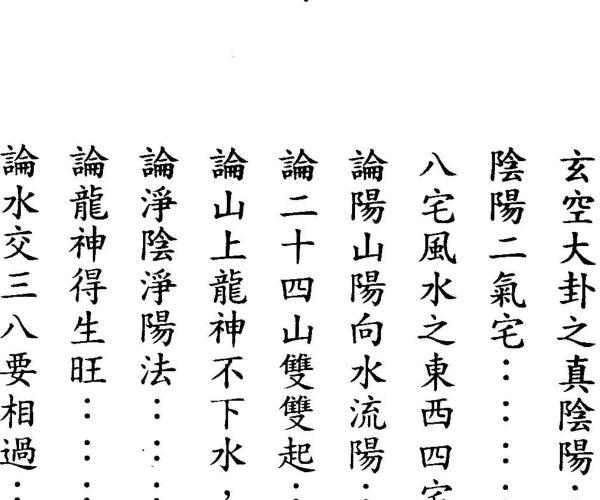 玄空大卦之真陰陽：
陰陽二氣宅：：：：
八宅風水之東西四宅
論陽山陽向水流陽：
論二十四山雙雙起：
論山上龍神不下水，
論淨陰淨陽法：：：
論龍神得生旺：：：
論水交三八要相過：